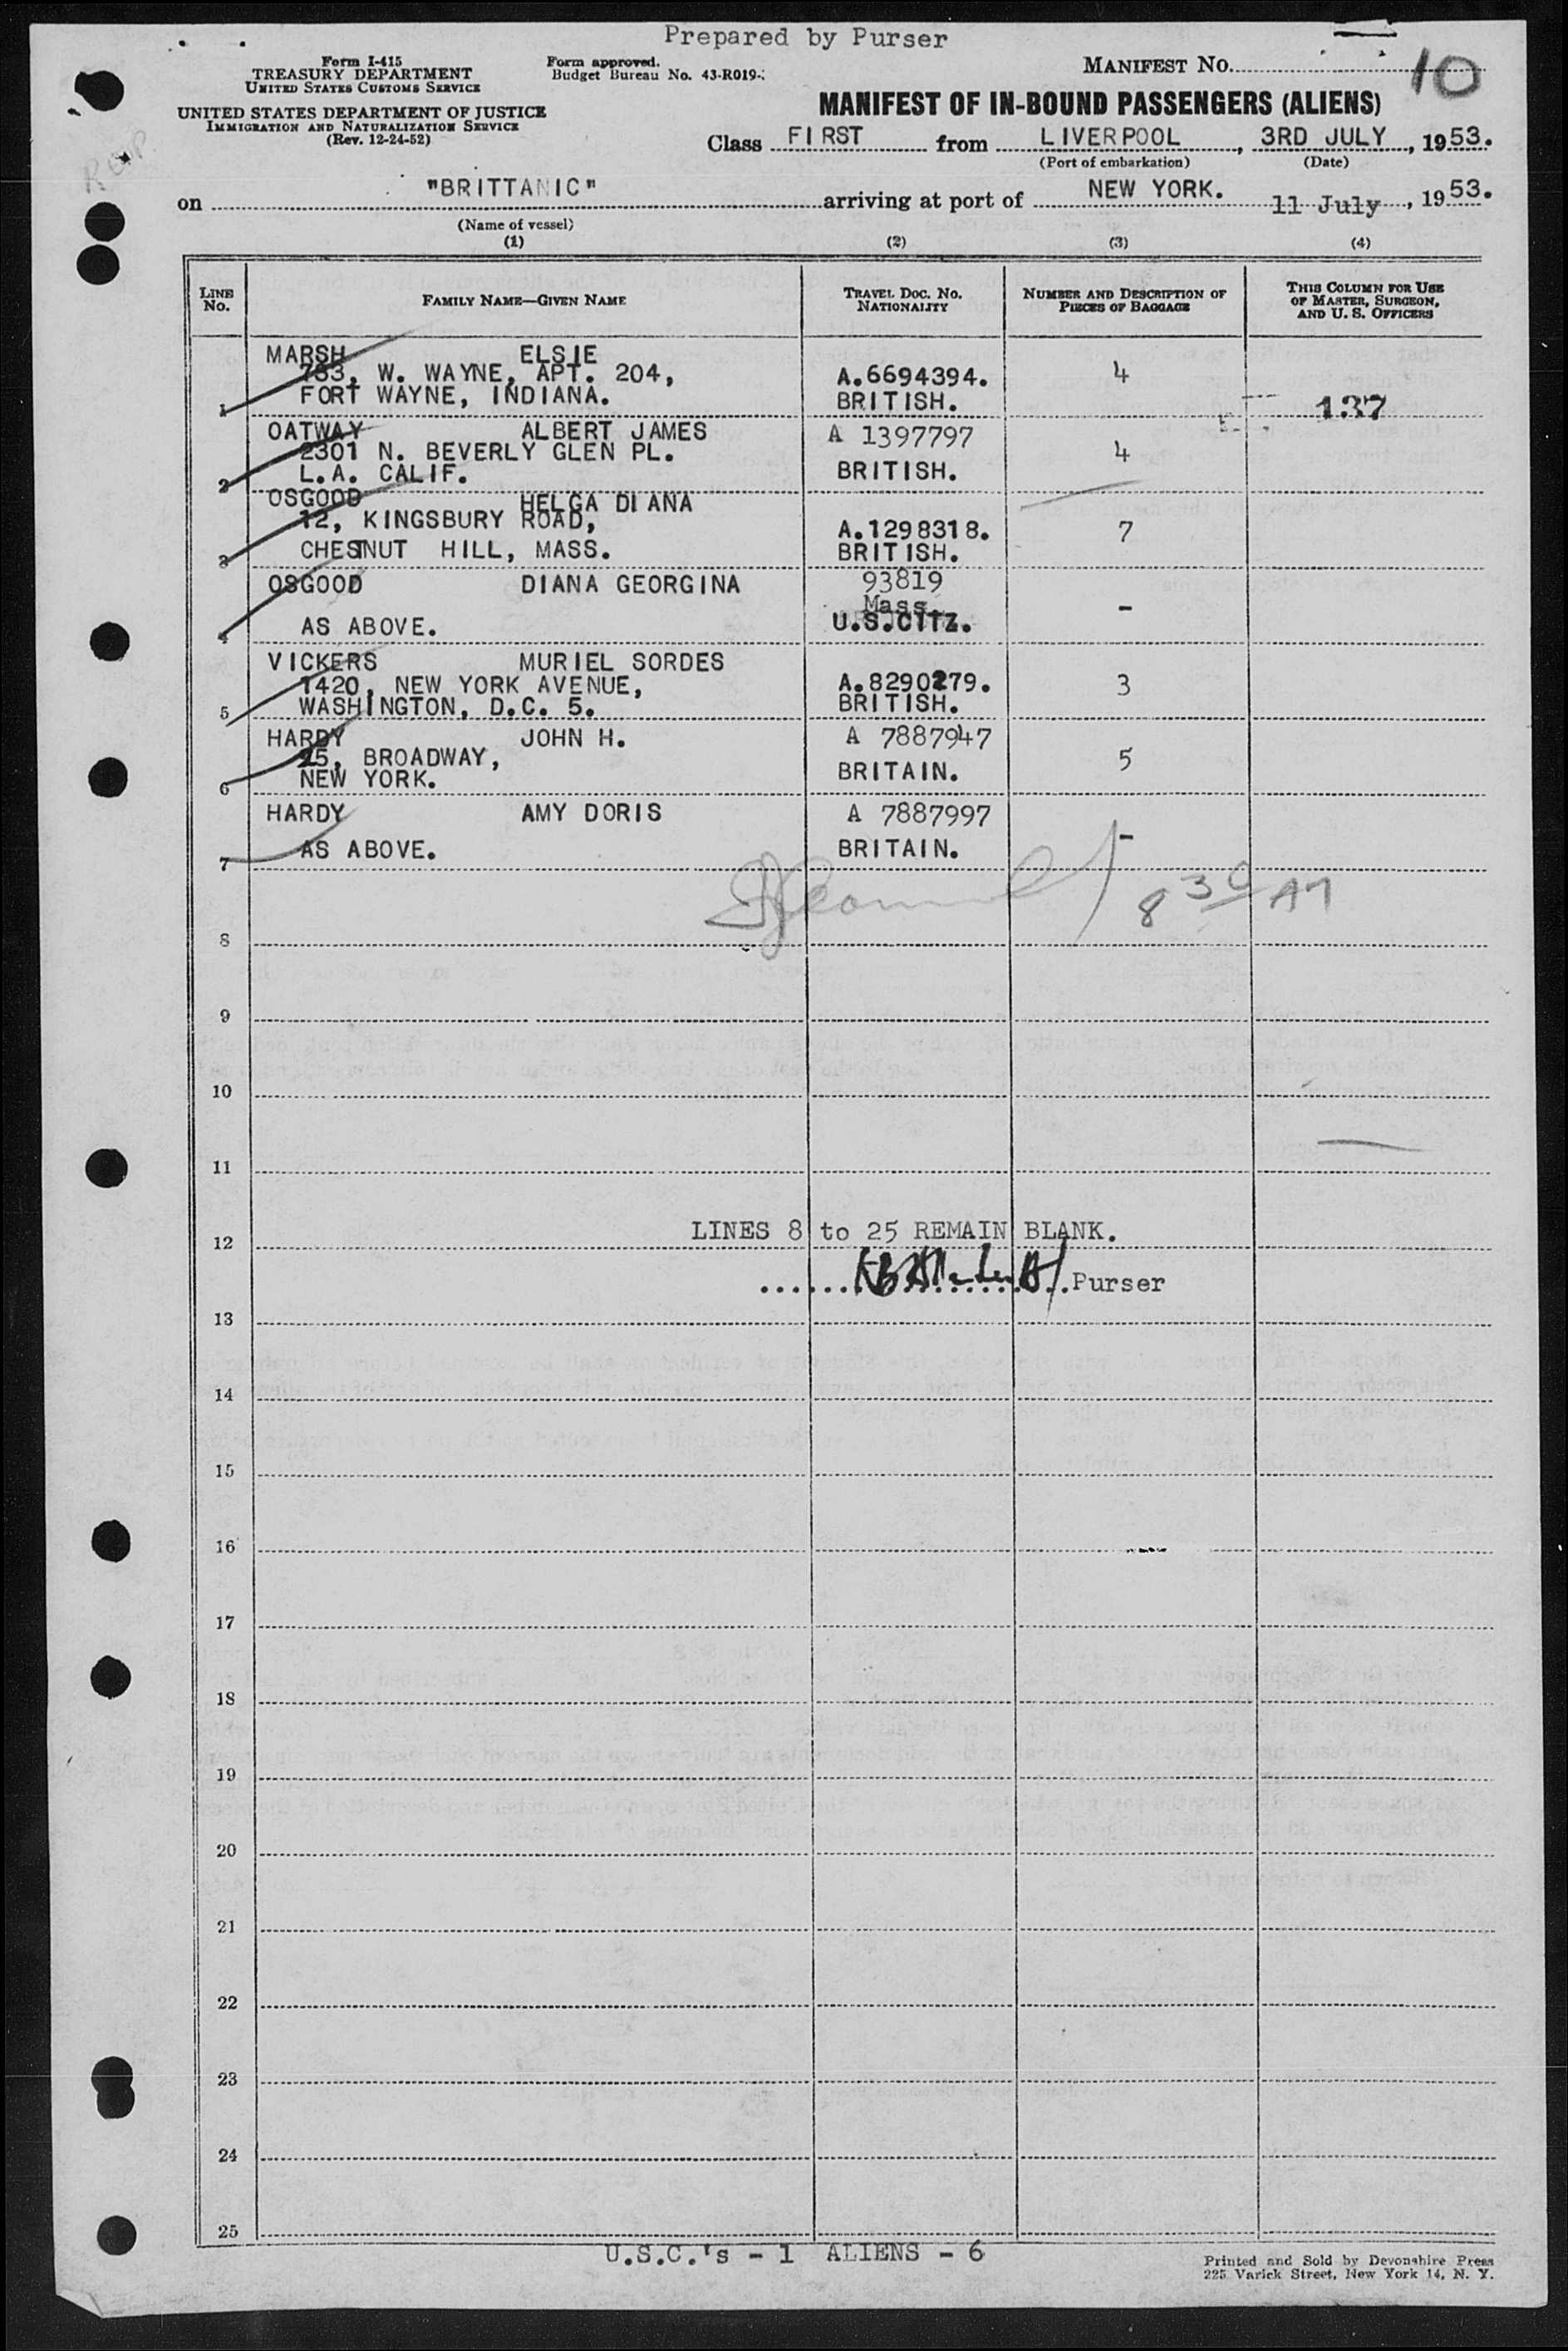 Prepared by Purser
Form I-415
TREASURY DEPARTMENT
UNITED STATES CUSTOMS SERVICE
UNITED STATES DEPARTMENT OF JUSTICE
IMMIGRATION AND NATURALIZATION SERVICE
(Rev. 12-24-52)
Form approved.
Budget Bureau No. 43-R019-
MANIFEST NO. 10
MANIFEST OF IN-BOUND PASSENGERS (ALIENS)
Class FIRST from LIVERPOOL, 3RD JULY, 1953.
(Port of embarkation) (Date)
on "BRITTANIC" arriving at port of NEW YORK. 11 July, 1953.
(Name of vessel)
(1) (2) (3) (4)
LINE NO. FAMILY NAME—GIVEN NAME TRAVEL DOC. NO. NATIONALITY NUMBER AND DESCRIPTION OF PIECES OF BAGGAGE THIS COLUMN FOR USE OF MASTER, SURGEON, AND U. S. OFFICERS
MARSH ELSIE
783, W. WAYNE, APT. 204, A.6694394. 4
1 FORT WAYNE, INDIANA. BRITISH. 137
OATWAY ALBERT JAMES A 1397797
2301 N. BEVERLY GLEN PL. 4
2 L.A. CALIF. BRITISH.
OSGOOD HELGA DIANA
12, KINGSBURY ROAD, A.1298318. 7
3 CHESTNUT HILL, MASS. BRITISH.
OSGOOD DIANA GEORGINA 93819
Mass. -
4 AS ABOVE. U.S.CITZ.
VICKERS MURIEL SORDES
1420, NEW YORK AVENUE, A.8290279. 3
5 WASHINGTON, D.C. 5. BRITISH.
HARDY JOHN H. A 7887947
25, BROADWAY, 5
6 NEW YORK. BRITAIN.
HARDY AMY DORIS A 7887997
-
7 AS ABOVE. BRITAIN.
8 30 AM
8
9
10
11
LINES 8 to 25 REMAIN BLANK.
12
Purser
13
14
15
16
17
18
19
20
21
22
23
24
25
U.S.C.'s - 1 ALIENS - 6
Printed and Sold by Devonshire Press
225 Varick Street, New York 14, N. Y.